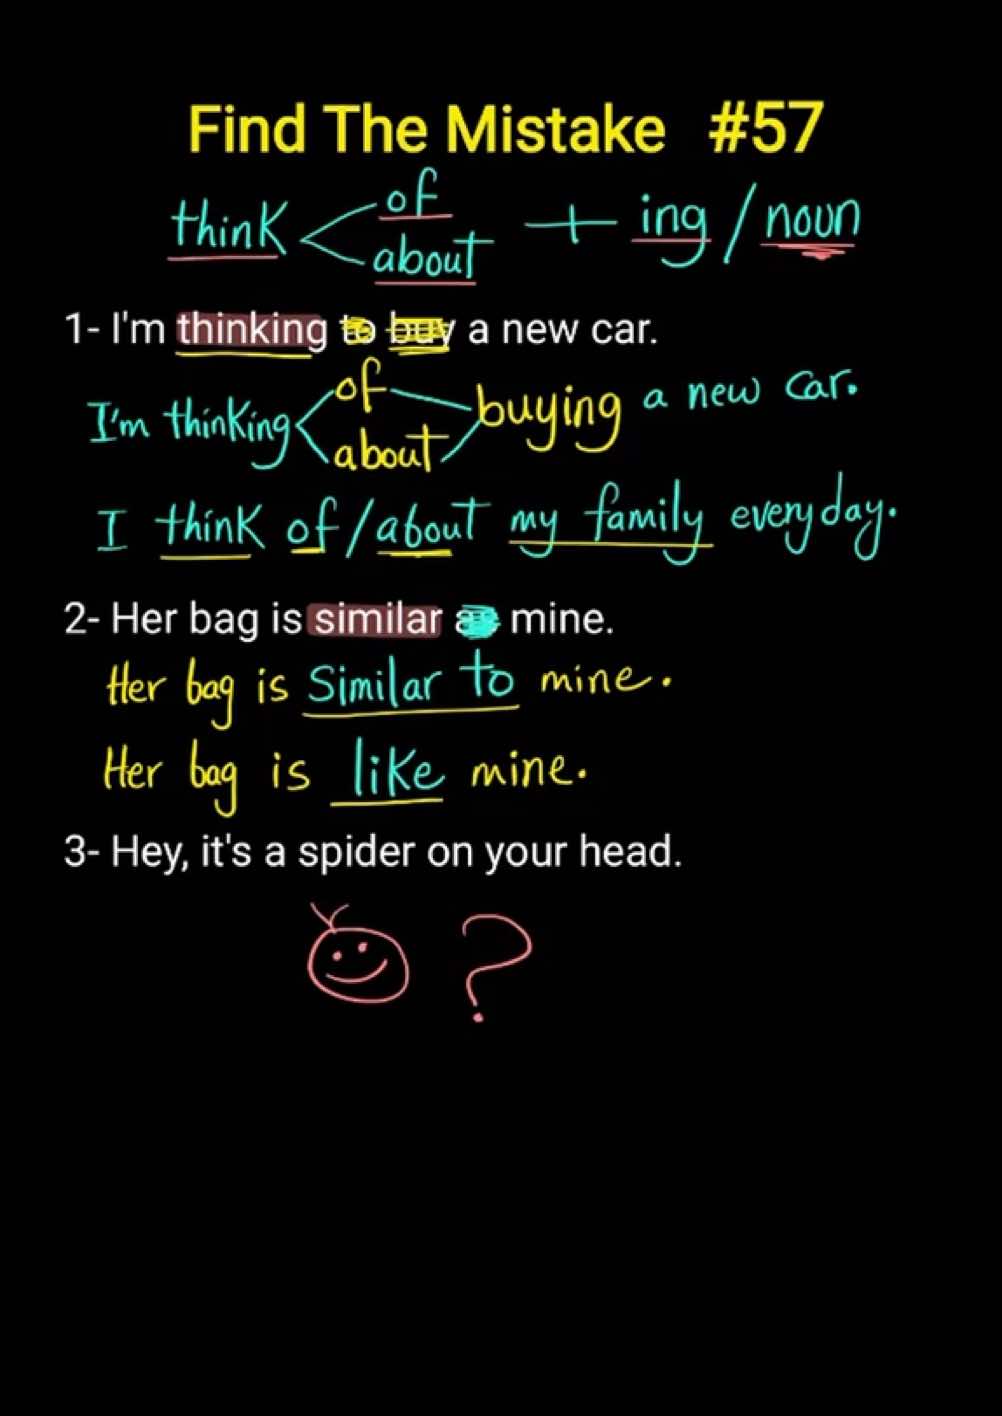 Find The Mistake #57
think < of / about + ing / noun
1- I'm thinking to buy a new car.
I'm thinking < of / about buying a new car.
I think of / about my family everyday.
2- Her bag is similar as mine.
Her bag is similar to mine.
Her bag is like mine.
3- Hey, it's a spider on your head.
?